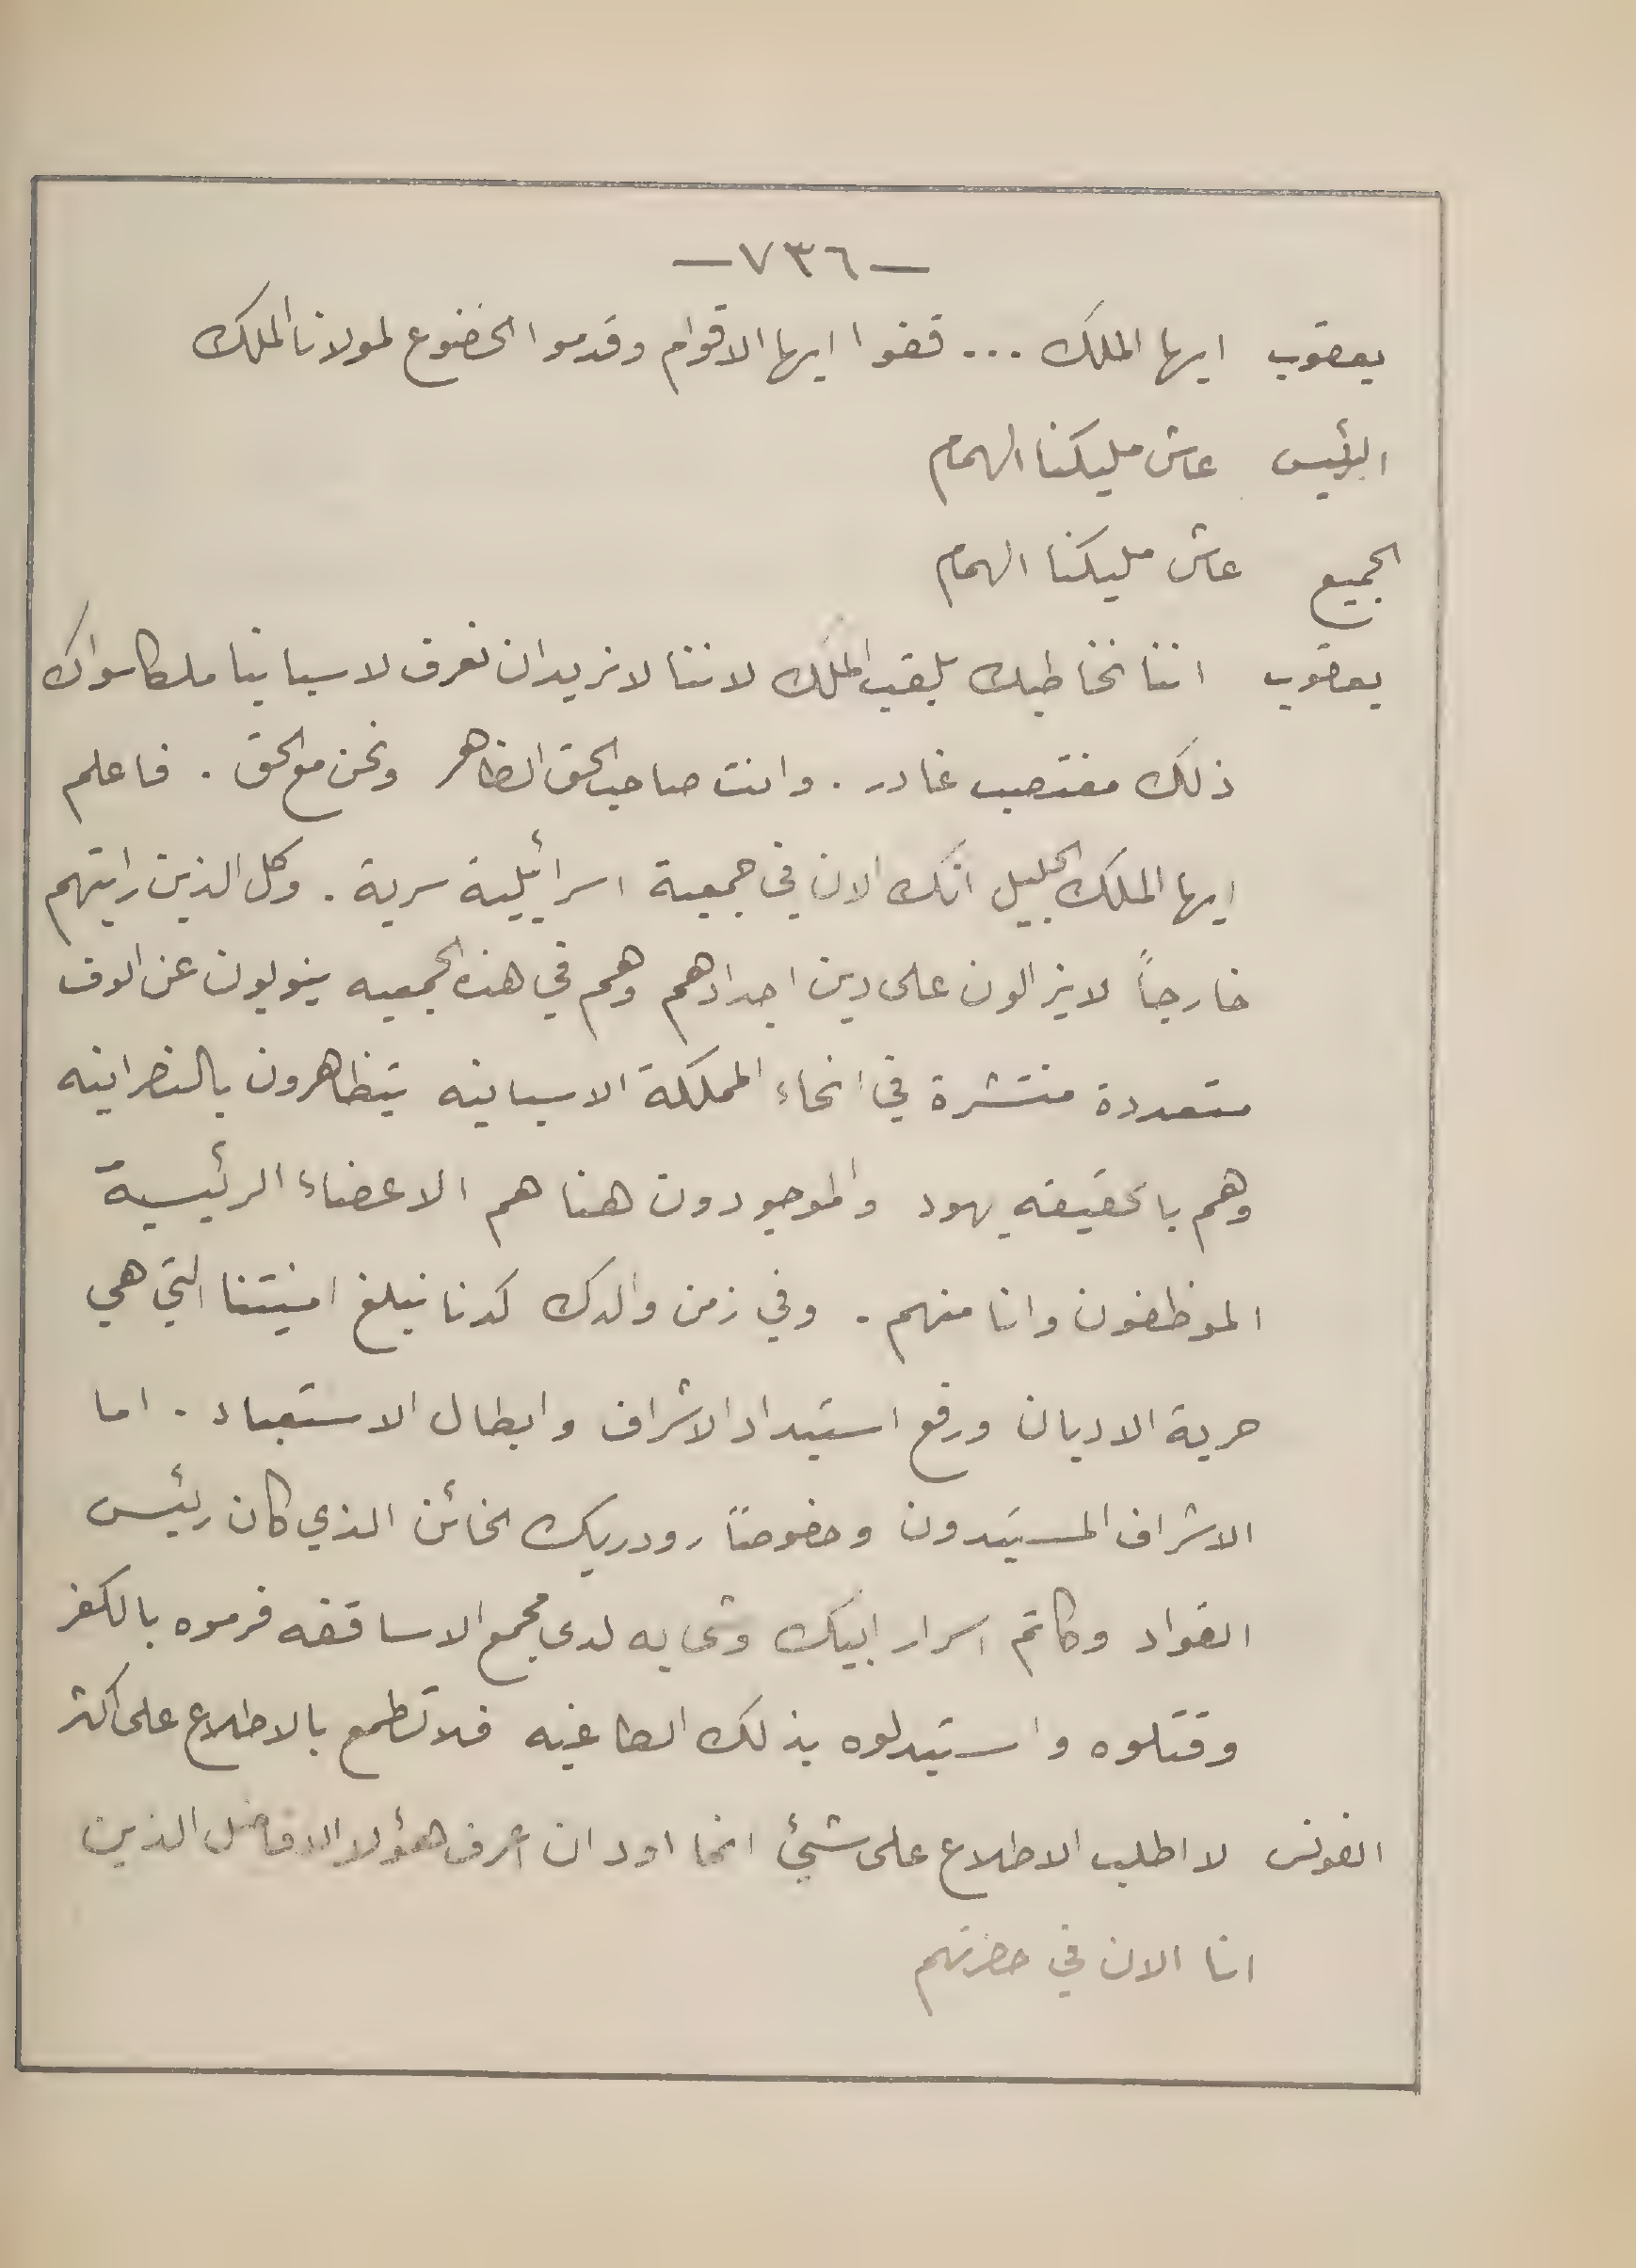 —٧٣٦—
يعقوب ايها الملك ... قفوا ايها الاقوام وقدموا الخضوع لمولانا الملك
الرئيس عاش مليكنا الهمام
الجميع عاش مليكنا الهمام
يعقوب اننا نخاطبك بلقب الملك لاننا لا نريد ان نعرف لاسبانيا ملكا سواك
ذلك مغتصب غادر . وانت صاحب الحق الظاهر ونحن مع الحق . فاعلم
ايها الملك الجليل انك الان في جمعية اسرائيلية سرية . وكل الذين رايتهم
خارجاً لا يزالون على دين اجدادهم وهم في هذه الجمعيه ينوبون عن الوف
متعددة منتشرة في انحاء المملكة الاسبانيه يتظاهرون بالنصرانيه
وهم بالحقيقه يهود والموجودون هنا هم الاعضاء الرئيسية
الموظفون وانا منهم . وفي زمن والدك كدنا نبلغ امنيتنا التي هي
حرية الاديان ورفع استبداد الاشراف وابطال الاستعباد . اما
الاشراف المستبدون وخصوصاً رودريك الخائن الذي كان رئيس
القواد وكاتم اسرار ابيك وشى به لدى مجمع الاساقفه فرموه بالكفر
وقتلوه واستبدلوه بذلك الطاغيه فلا تطمع بالاطلاع على اكثر
الفونس لا اطلب الاطلاع على شيئ انما اود ان اعرف هؤلا الافاضل الذين
انا الان في حضرتهم